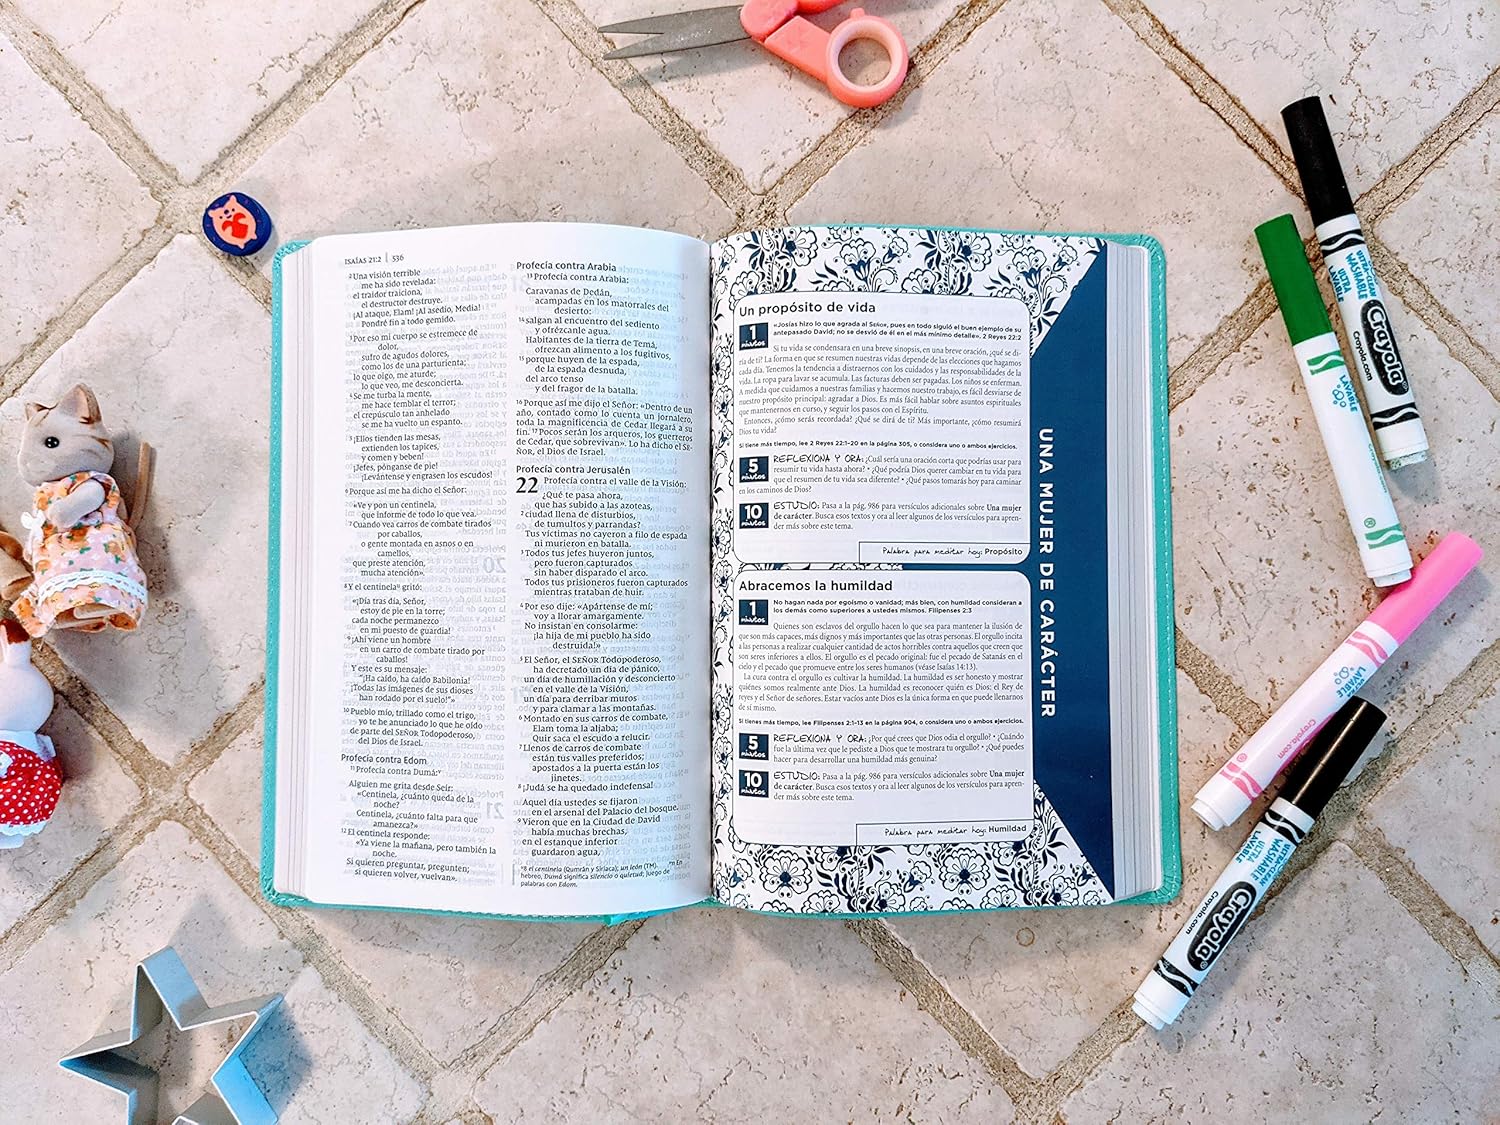 ISAÍAS 21:2 | 536
²Una visión terrible
me ha sido revelada:
el traidor traiciona,
el destructor destruye.
¡Al ataque, Elam! ¡Al asedio, Media!
Pondré fin a todo gemido.
³Por eso mi cuerpo se estremece de
dolor,
sufro de agudos dolores,
como los de una parturienta;
lo que oigo, me aturde;
lo que veo, me desconcierta.
⁴Se me turba la mente,
me hace temblar el terror;
el crepúsculo tan anhelado
se me ha vuelto un espanto.
⁵¡Ellos tienden las mesas,
extienden los tapices,
y comen y beben!
¡Jefes, pónganse de pie!
¡Levántense y engrasen los escudos!
⁶Porque así me ha dicho el Señor:
«Ve y pon un centinela,
que informe de todo lo que vea.
⁷Cuando vea carros de combate tirados
por caballos,
o gente montada en asnos o en
camellos,
que preste atención,
mucha atención».
⁸Y el centinelaⁿ gritó:
«¡Día tras día, Señor,
estoy de pie en la torre;
cada noche permanezco
en mi puesto de guardia!
⁹¡Ahí viene un hombre
en un carro de combate tirado por
caballos!
Y este es su mensaje:
“¡Ha caído, ha caído Babilonia!
¡Todas las imágenes de sus dioses
han rodado por el suelo!”»
¹⁰Pueblo mío, trillado como el trigo,
yo te he anunciado lo que he oído
de parte del SEÑOR Todopoderoso,
del Dios de Israel.
Profecía contra Edom
¹¹Profecía contra Dumá:
Alguien me grita desde Seír:
«Centinela, ¿cuánto queda de la
noche?
Centinela, ¿cuánto falta para que
amanezca?»
¹²El centinela responde:
«Ya viene la mañana, pero también la
noche.
Si quieren preguntar, pregunten;
si quieren volver, vuelvan».
Profecía contra Arabia
¹³Profecía contra Arabia:
Caravanas de Dedán,
acampadas en los matorrales del
desierto:
¹⁴salgan al encuentro del sediento
y ofrézcanle agua.
Habitantes de la tierra de Temá,
ofrezcan alimento a los fugitivos,
¹⁵porque huyen de la espada,
de la espada desnuda,
del arco tenso
y del fragor de la batalla.
¹⁶Porque así me dijo el Señor: «Dentro de un
año, contado como lo cuenta un jornalero,
toda la magnificencia de Cedar llegará a su
fin. ¹⁷Pocos serán los arqueros, los guerreros
de Cedar, que sobrevivan». Lo ha dicho el SE-
ÑOR, el Dios de Israel.
Profecía contra Jerusalén
22 Profecía contra el valle de la Visión:
¿Qué te pasa ahora,
que has subido a las azoteas,
²ciudad llena de disturbios,
de tumultos y parrandas?
Tus víctimas no cayeron a filo de espada
ni murieron en batalla.
³Todos tus jefes huyeron juntos,
pero fueron capturados
sin haber disparado el arco.
Todos tus prisioneros fueron capturados
mientras trataban de huir.
⁴Por eso dije: «Apártense de mí;
voy a llorar amargamente.
No insistan en consolarme:
¡la hija de mi pueblo ha sido
destruida!»
⁵El Señor, el SEÑOR Todopoderoso,
ha decretado un día de pánico,
un día de humillación y desconcierto
en el valle de la Visión,
un día para derribar muros
y para clamar a las montañas.
⁶Montado en sus carros de combate,
Elam toma la aljaba;
Quir saca el escudo a relucir.
⁷Llenos de carros de combate
están tus valles preferidos;
apostados a la puerta están los
jinetes.
⁸¡Judá se ha quedado indefensa!
Aquel día ustedes se fijaron
en el arsenal del Palacio del bosque.
⁹Vieron que en la Ciudad de David
había muchas brechas,
en el estanque inferior
guardaron agua,
8 el centinela (Qumrán y Siríaca); un león (TM). En
hebreo, Dumá significa silencio o quietud; juego de
palabras con Edom.
Un propósito de vida
1 minutos «Josías hizo lo que agrada al SEÑOR, pues en todo siguió el buen ejemplo de su
antepasado David; no se desvió de él en el más mínimo detalle». 2 Reyes 22:2
Si tu vida se condensara en una breve sinopsis, en una breve oración, ¿qué se di-
ría de ti? La forma en que se resumen nuestras vidas depende de las elecciones que hagamos
cada día. Tenemos la tendencia a distraernos con los cuidados y las responsabilidades de la
vida. La ropa para lavar se acumula. Las facturas deben ser pagadas. Los niños se enferman.
A medida que cuidamos a nuestras familias y hacemos nuestro trabajo, es fácil desviarse de
nuestro propósito principal: agradar a Dios. Es más fácil hablar sobre asuntos espirituales
que mantenernos en curso, y seguir los pasos con el Espíritu.
Entonces, ¿cómo serás recordada? ¿Qué se dirá de ti? Más importante, ¿cómo resumirá
Dios tu vida?
Si tiene más tiempo, lee 2 Reyes 22:1–20 en la página 305, o considera uno o ambos ejercicios.
5 minutos REFLEXIONA Y ORA: ¿Cuál sería una oración corta que podrías usar para
resumir tu vida hasta ahora? • ¿Qué podría Dios querer cambiar en tu vida para
que el resumen de tu vida sea diferente? • ¿Qué pasos tomarás hoy para caminar
en los caminos de Dios?
10 minutos ESTUDIO: Pasa a la pág. 986 para versículos adicionales sobre Una mujer
de carácter. Busca esos textos y ora al leer algunos de los versículos para apren-
der más sobre este tema.
Palabra para meditar hoy: Propósito
Abracemos la humildad
1 minutos No hagan nada por egoísmo o vanidad; más bien, con humildad consideran a
los demás como superiores a ustedes mismos. Filipenses 2:3
Quienes son esclavos del orgullo hacen lo que sea para mantener la ilusión de
que son más capaces, más dignos y más importantes que las otras personas. El orgullo incita
a las personas a realizar cualquier cantidad de actos horribles contra aquellos que creen que
son seres inferiores a ellos. El orgullo es el pecado original: fue el pecado de Satanás en el
cielo y el pecado que promueve entre los seres humanos (véase Isaías 14:13).
La cura contra el orgullo es cultivar la humildad. La humildad es ser honesto y mostrar
quiénes somos realmente ante Dios. La humildad es reconocer quién es Dios: el Rey de
reyes y el Señor de señores. Estar vacíos ante Dios es la única forma en que puede llenarnos
de sí mismo.
Si tienes más tiempo, lee Filipenses 2:1-13 en la página 904, o considera uno o ambos ejercicios.
5 minutos REFLEXIONA Y ORA: ¿Por qué crees que Dios odia el orgullo? • ¿Cuándo
fue la última vez que le pediste a Dios que te mostrara tu orgullo? • ¿Qué puedes
hacer para desarrollar una humildad más genuina?
10 minutos ESTUDIO: Pasa a la pág. 986 para versículos adicionales sobre Una mujer
de carácter. Busca esos textos y ora al leer algunos de los versículos para apren-
der más sobre este tema.
Palabra para meditar hoy: Humildad
UNA MUJER DE CARÁCTER
ULTRA-CLEAN
WASHABLE
ULTRA
LAVABLE
Crayola
Crayola.com
LAVABLE
LAVABLE
Crayola.com
ULTRA-CLEAN
WASHABLE
ULTRA
LAVABLE
Crayola
Crayola.com